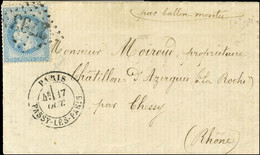 par ballon monté
Monsieur Moiroud, propriétaire
Châtillon d'Azergues, La Roche
par Chessy
(Rhône)
PARIS
17
OCT.
PASSY-LES-PARIS